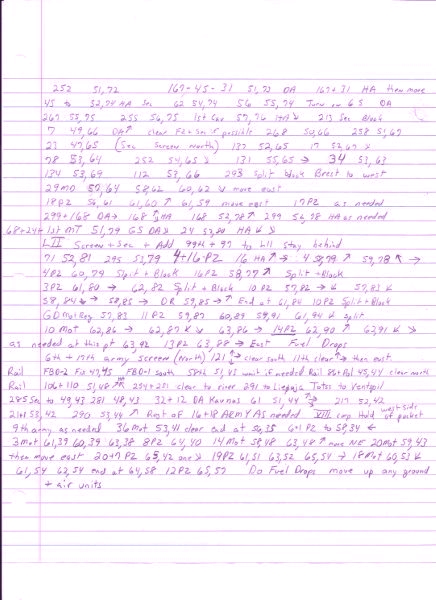 252 51,72 167-45-31 51,73 DA 167+31 HA then move
45 to 52,74 HA Sec 62 54,74 56 55,74 Turn on GS DA
267 55,75 255 56,75 1st Cav 57,76 HA↘ 213 Sec Block
7 49,66 DA↑ clear FZ + Sec if possible 268 50,66 258 51,67
23 47,65 (Sec Screen north) 137 52,65 17 52,67 ↘
78 53,64 252 54,65 ↘ 131 55,65 → 34 53,63
134 53,69 112 53,66 293 split block Brest to west
29 MO 57,64 58,62 60,62 ↘ move east
18PZ 56,61 61,60 ↗ 61,59 move east 17PZ as needed
299+168 DA→ 168 HA 168 53,78 ↗ 299 52,78 HA as needed
68+24+1st MT 51,79 GS DA↘ 24 53,80 HA
LII Screen + Sec + Add 99th + 97 to LII stay behind
71 52,81 295 53,79 4+16PZ 16 HA ↗→ 4 58,79 ↗ 59,78
4PZ 60,79 Split + Block 16PZ 58,77 ↗ Split + Block
3PZ 61,80 → 62,82 Split + Block 10PZ 57,82 57,83
58,84 → 58,85 → OR 59,85 → ↗ End at 61,84 10PZ Split + Block
GD Mot Reg 57,83 11PZ 59,87 60,89 59,91 61,94 Split
10 Mot 62,86 → 62,87 63,86 → 14PZ 62,90 ↗ 63,91
as needed at this pt 63,92 13PZ 63,88 → East Fuel Drops
6th + 17th army Screen (North) 121 clear south 11th clear then east.
Rail FBD-2 Fix 47,45 FBD-1 south 58th 51,45 wait if needed Rail 86+Pol 45,44 clear north
Rail 106+110 51,48 254+251 clear to river 291 to Liepaja Totss to Ventspil
285 Sec to 49,43 281 48,43 32+12 DA Kaunas 61 51,44 217 52,42
21+1 53,42 290 53,44 ↗ Rest of 16+18 ARMY AS needed VIII corp Hold west side of pocket
9th army as needed 36 Mot 53,41 clear end at 56,35 6+1 PZ to 58,34 ←
3 Mot 61,39 60,39 63,38 8PZ 64,40 14 Mot 58,48 63,48 ↗ move NE 20 Mot 59,43
then move east 20+7PZ 65,42 one ↘ 19PZ 61,51 63,52 65,54 → 18 Mot 60,53
61,54 63,54 end at 64,58 12PZ 65,57 Do Fuel Drops move up any ground
+ air units